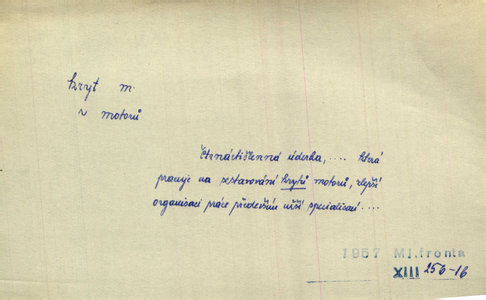 kryt m.
v motorů
čtrnáctičlenná úderka, .... která
pracuje na sestavování krytů motorů, zlepší
organisaci práce především užší specialisací ....
1957 Ml.fronta
XIII 256-16